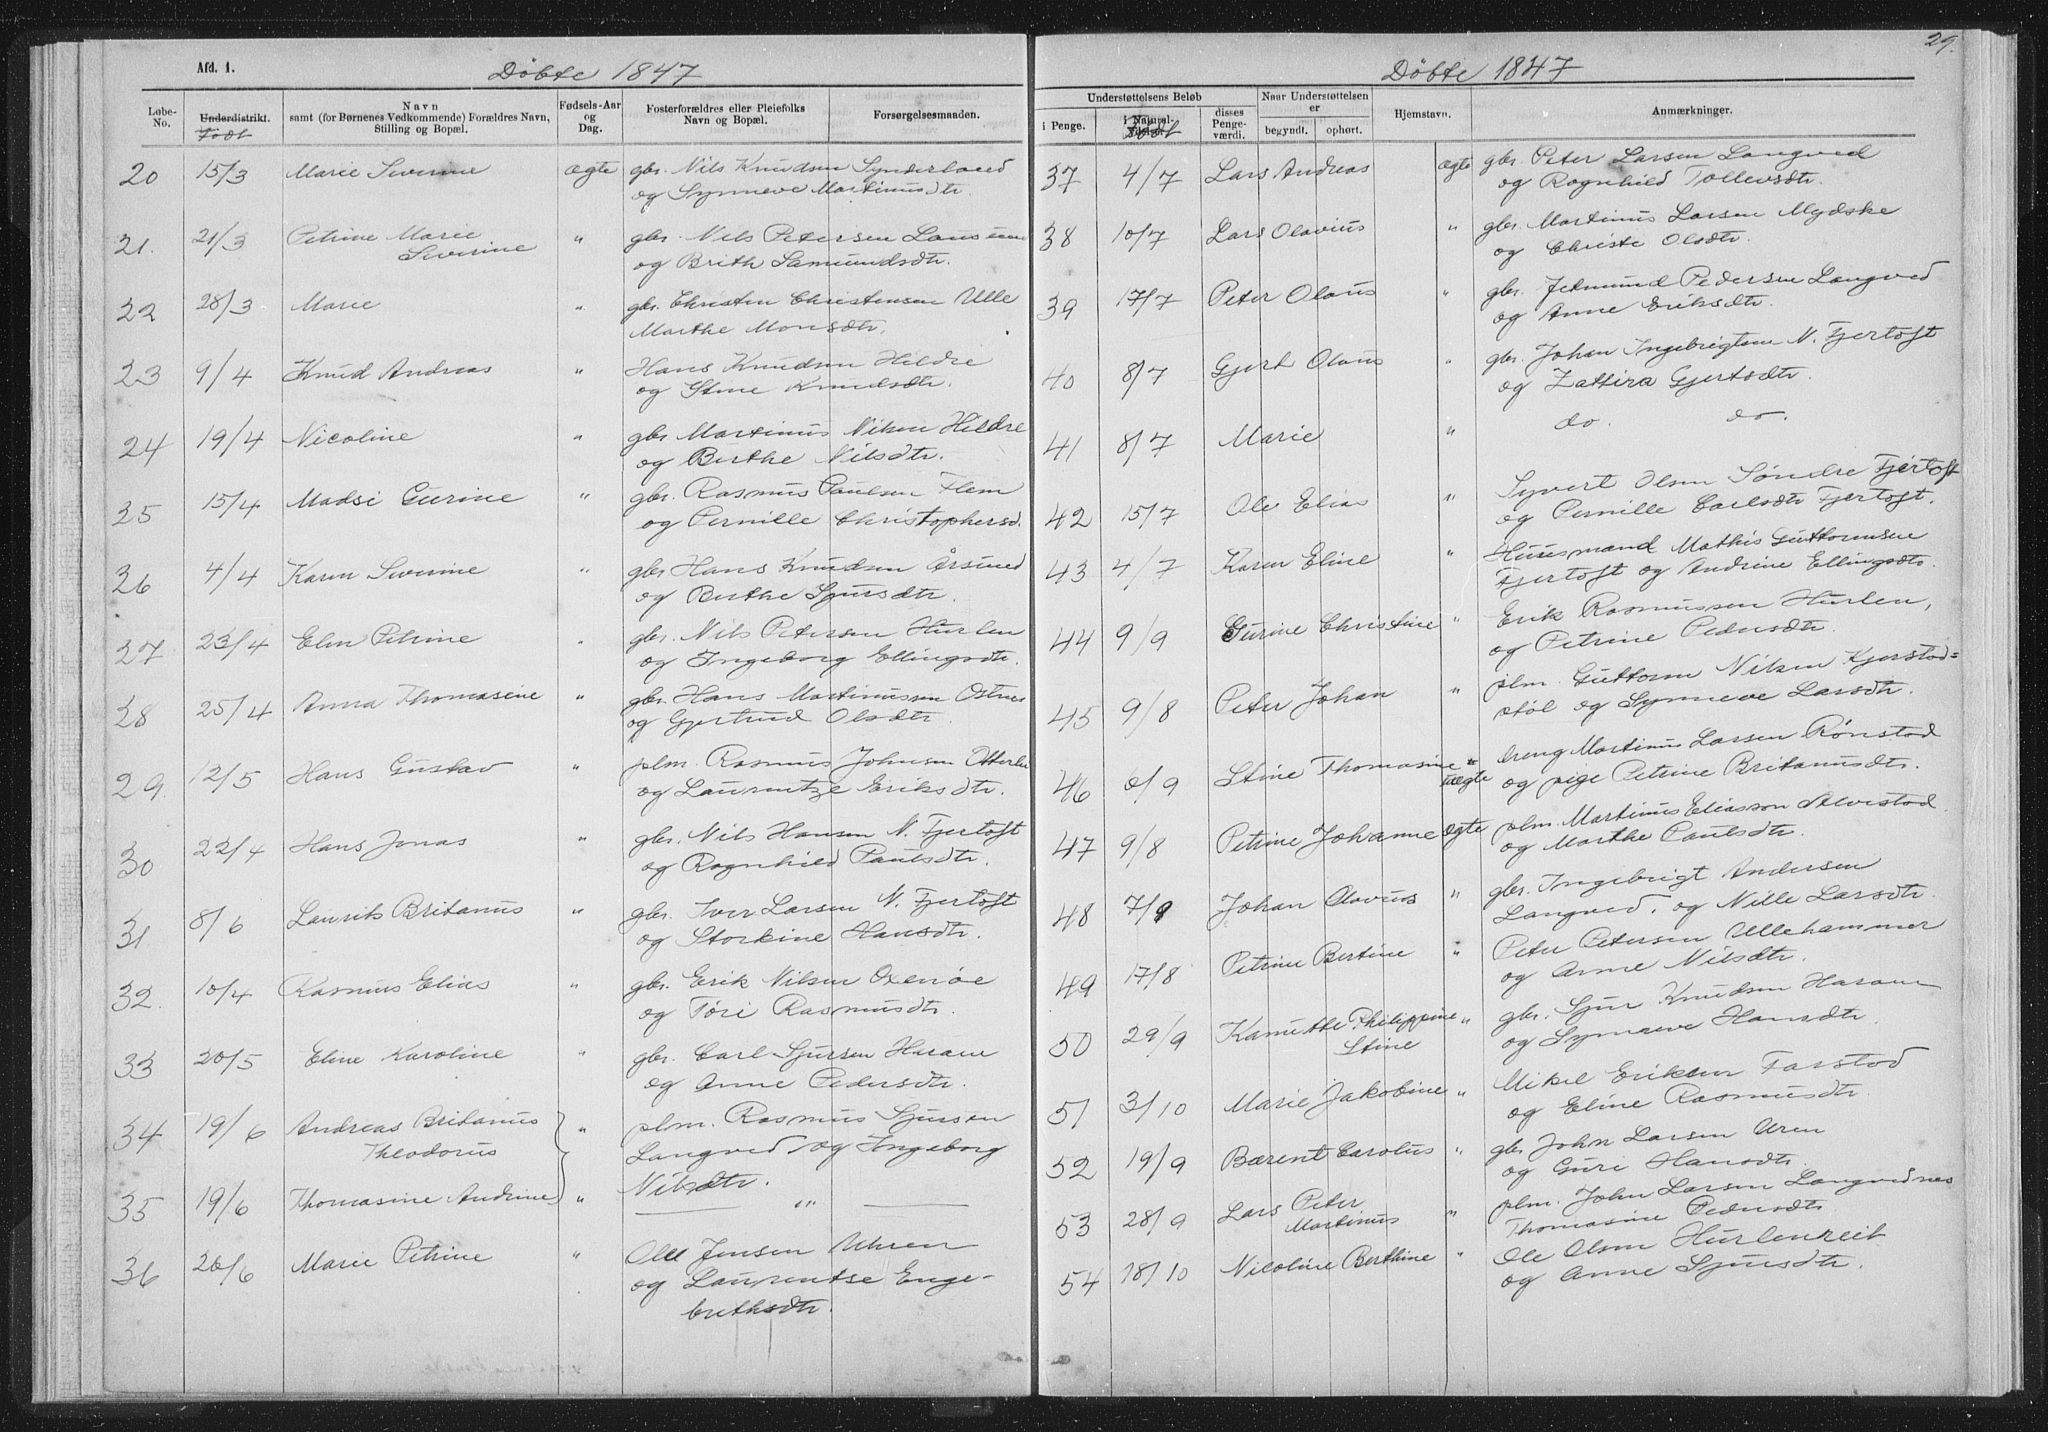 Afd. 1.
Døbte 1847
Løbe-No.
Underdistrikt.
Født
Navn
samt (for Børnenes Vedkommende) Forældres Navn,
Stilling og Bopæl.
Fødsels-Aar
og
Dag.
Fosterforældres eller Pleiefolks
Navn og Bopæl.
Forsørgelsesmaaden.
20 15/3 Marie Severine ægte gbr. Nils Knudsen Synderland
og Synneve Martinusdtr.
21. 21/3 Petrine Marie " gbr. Nils Petersen
Severine og Brith Samundsdtr.
22 28/3 Marie " gbr. Christen Christensen Ulle
Marthe Monsdtr.
23 9/4 Knud Andreas " Hans Knudsen Hildre
og Stine Knudsdtr.
24 19/4 Nicoline " gbr Martinus Nilsen Hildre
og Berthe Nilsdtr.
25 15/4 Madsi Gurine " gbr. Rasmus Paulsen Flem
og Pernille Christophersd.
26 4/4 Karen Severine " gbr Hans Knudsen Årsund
og Berthe Sjursdtr.
27 23/4 Elen Petrine " gbr. Nils Petersen Hurlen
og Ingeborg Ellingsdtr.
28 25/4 Anna Thomasine " gbr Hans Martinussen Ostnes
og Gjertrud Olsdtr.
29. 12/5 Hans Gustav " plm. Rasmus Johnsen Otterlei
og Laurentze Eriksdtr.
30 22/4 Hans Jonas " gbr. Nils Hansen N. Fjertoft
og Rognhild Paulsdtr.
31 8/6 Laurits Britanus " gbr. Iver Larsen N. Fjertoft
og Storkine Hansdtr.
32. 10/4 Rasmus Elias " gbr. Erik Nilsen Oxenøe
og Töri Rasmusdtr.
33 20/5 Eline Karoline " gbr. Carl Sjursen Haram
og Anne Pedersdtr.
34 19/6 Andreas Britanus " plm. Rasmus Sjursen
Theodorus Langved og Ingeborg
Nilsdtr.
35 19/6 Thomasine Andrine " — " —
36 20/6 Marie Petrine " Ole Jensen Uhren
og Laurentse Enge-
brithsdtr.
29.
Døbte 1847
Understøttelsens Beløb
i Penge.
i Natural-
Født
disses
Penge-
værdi.
Naar Understøttelsen
er
begyndt.
ophørt.
Hjemstavn.
Anmærkninger.
37 4/7 Lars Andreas ægte gbr. Peter Larsen Langved
og Rognhild Tollevsdtr.
38 10/7 Lars Olavius " gbr. Martinus Larsen Mydske
og Christe Olsdtr.
39 17/7 Peter Olaus " gbr. Jetmund Pedersen Langved
og Anne Eriksdtr.
40 8/7 Gjert Olaus " gbr. Johan Ingebrigtsen N. Fjertoft
og Zattira Gjertsdtr.
41 8/7 Marie " do. do.
42 15/7 Ole Elias " Syvert Olsen Søndre Fjertoft
og Pernille Carlsdtr Fjertoft.
43 4/7 Karen Eline " Huusmand Mathis Guttormsen
Fjertoft og Andrine Ellingsdtr.
44 9/9 Gurine Christine " Erik Rasmussen Hurlen,
og Petrine Pedersdtr.
45 9/8 Peter Johan " plm. Guttorm Nilsen Kjerstad=
støl og Synneve Larsdtr.
46 2/9 Stine Thomasine " dreng Martinus Larsen Rønstad
uægte og pige Petrine Britanusdtr.
47 9/8 Petrine Johanne ægte plm. Martinus Eliasson Alvestad
og Marthe Paulsdtr.
48 7/9 Johan Olavus " gbr. Ingebrigt Andersen
Langved. og Nille Larsdtr
49 17/8 Petrine Bertine " Peter Petersen Ullehammer
og Anne Nilsdtr.
50 29/9 Kanutte Philippine " gbr. Sjur Knudsen Haram
Stine og Synneve Hansdtr
51 3/10 Marie Jakobine " Mikel Eriksen Farstad
og Eline Rasmusdtr.
52 19/9 Barent Carolus " gbr John Larsen Uren
og Guri Hansdtr.
53 28/9 Lars Peter " plm. John Larsen Langvednes
Martinus Thomasine Pedersdtr
54 18/10 Nicoline Berthine " Ole Olsen Hurlenreit
og Anne Sjursdtr.